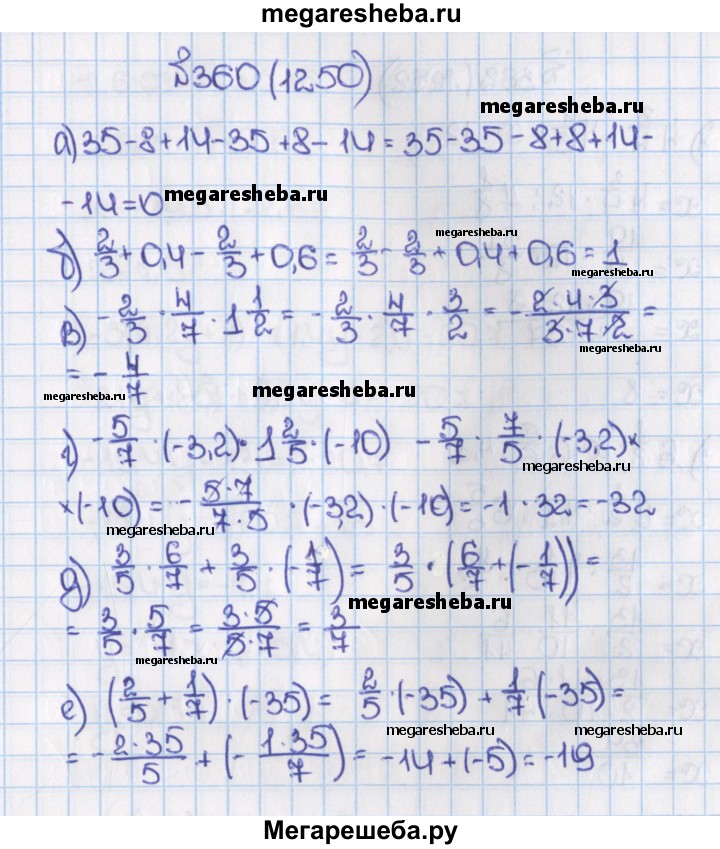 megaresheba.ru
№360 (1250)
megaresheba.ru
а) 35-8+14-35+8-14=35-35-8+8+14-
-14=0 megaresheba.ru
megaresheba.ru
б) 2/3+0,4-2/3+0,6=2/3-2/3+0,4+0,6=1
megaresheba.ru
в) -2/3·4/7·1 1/2=-2/3·4/7·3/2=-2·4·3/3·7·2=
megaresheba.ru
=-4/7
megaresheba.ru megaresheba.ru
г) -5/7·(-3,2)·1 2/5·(-10) -5/7·7/5·(-3,2)×
megaresheba.ru
×(-10)=-5·7/7·5·(-3,2)·(-10)=-1·32=-32
megaresheba.ru
д) 3/5·6/7+3/5·(-1/7)=3/5·(6/7+(-1/7))=
megaresheba.ru
=3/5·5/7=3·5/5·7=3/7
megaresheba.ru
е) (2/5+1/7)·(-35)=2/5·(-35)+1/7·(-35)=
megaresheba.ru megaresheba.ru
=-2·35/5+(-1·35/7)=-14+(-5)=-19
megaresheba.ru
Мегарешеба.ру